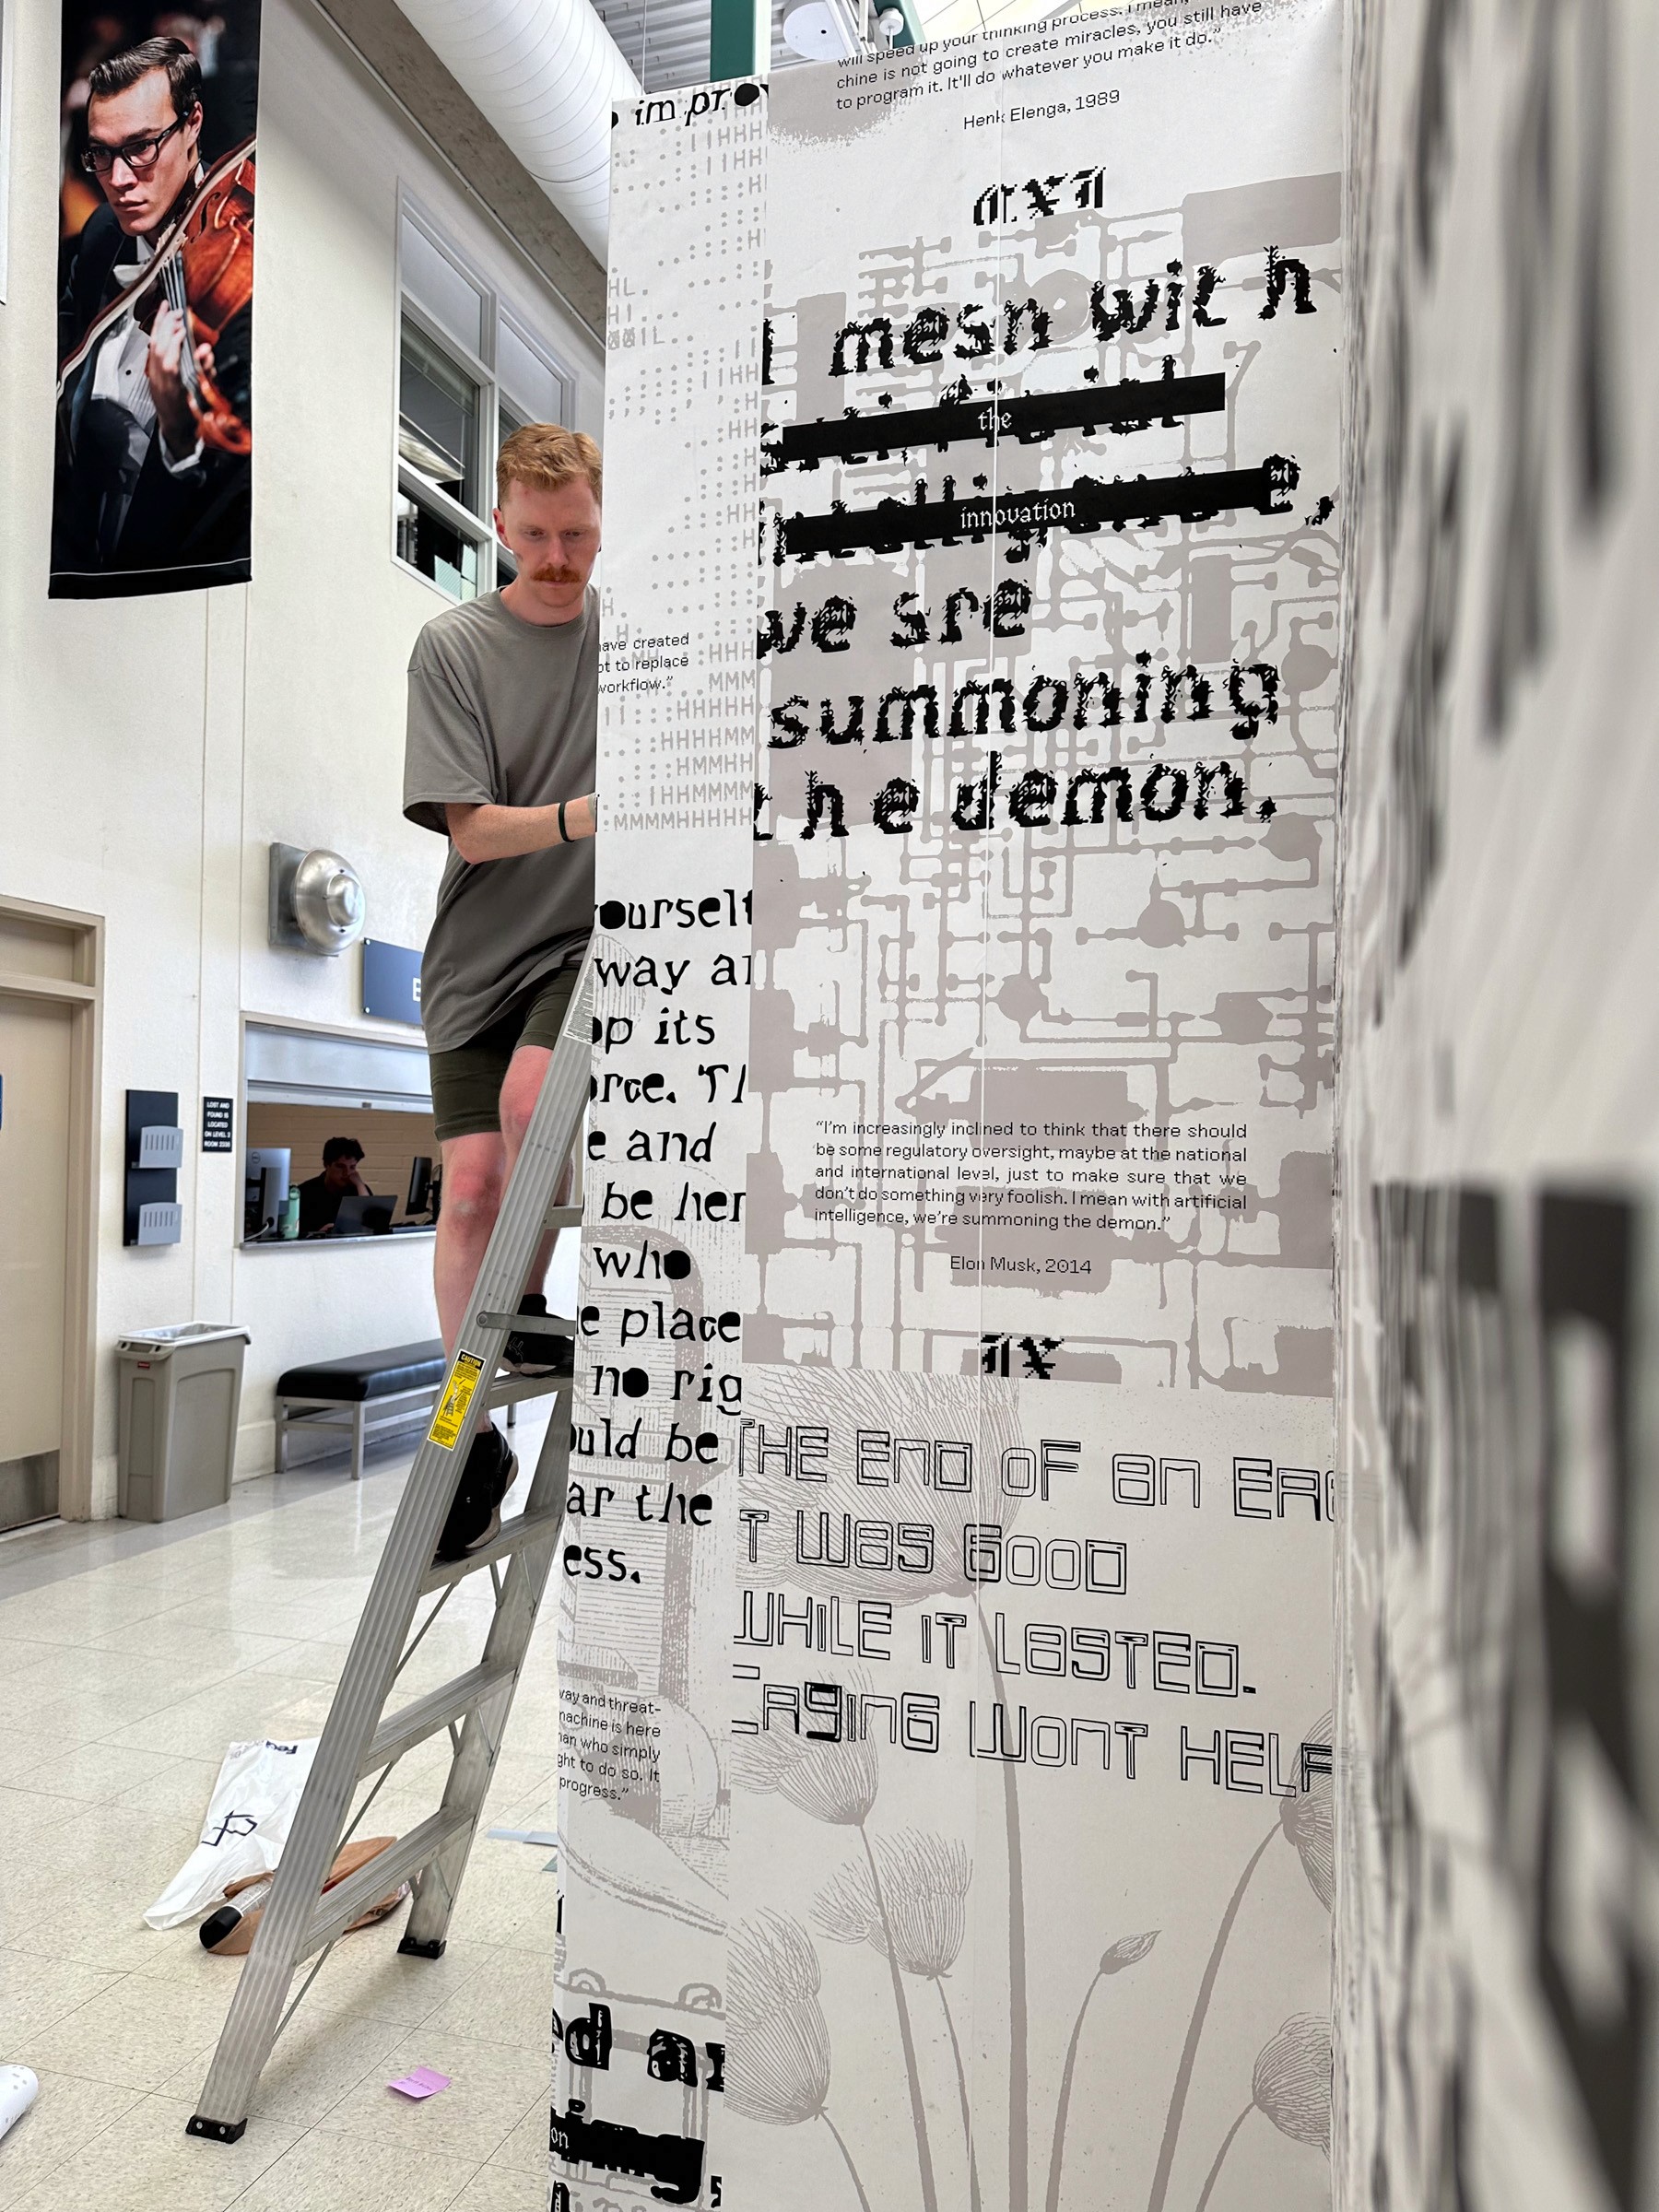 improv
will speed up your thinking process. I mean,
chine is not going to create miracles, you still have
to program it. It'll do whatever you make it do."
Henk Elenga, 1989
I mesn with
the
innovation
we sre
summoning
the demon.
ave created
ot to replace
workflow."
ourself
way an
op its
orce. Th
e and
be her
who
e place
no rig
ould be
ar the
ess.
"I'm increasingly inclined to think that there should
be some regulatory oversight, maybe at the national
and international level, just to make sure that we
don't do something very foolish. I mean with artificial
intelligence, we're summoning the demon."
Elon Musk, 2014
THE END OF AN ERA
T WAS GOOD
WHILE IT LASTED.
RAGING WONT HELP
way and threat-
machine is here
man who simply
ght to do so. It
progress."
ed an
on
LOST AND
FOUND IS
LOCATED
ON LEVEL 2
ROOM 2230
CAUTION